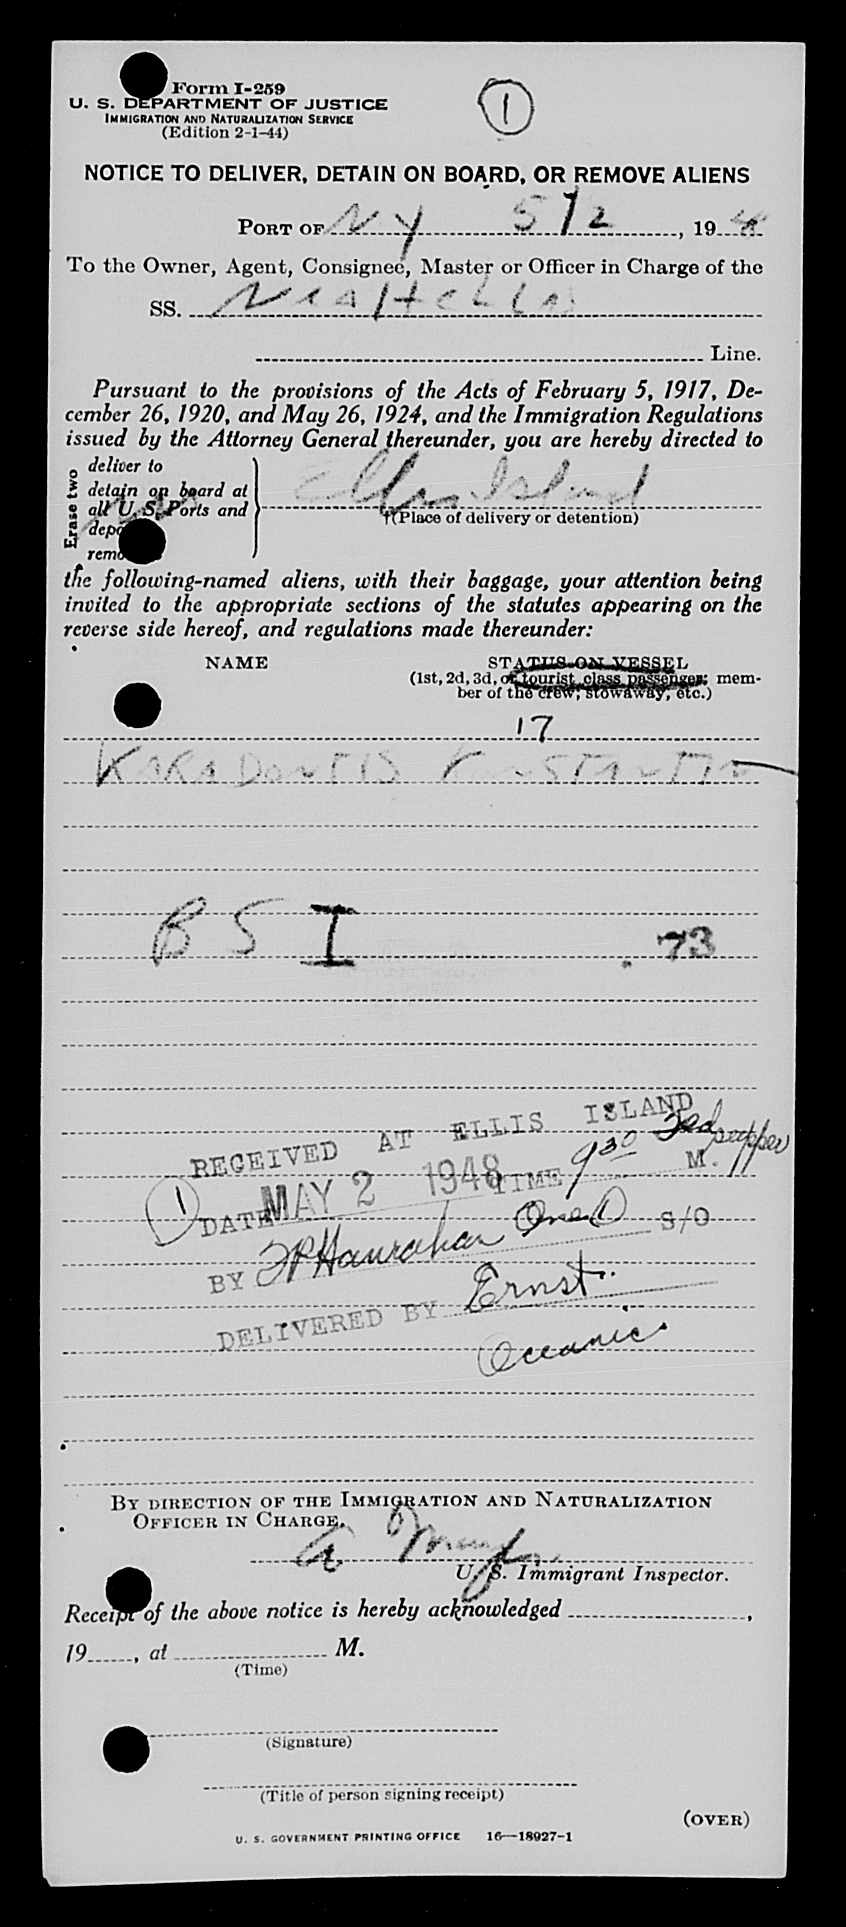 1
Form I-259
U. S. DEPARTMENT OF JUSTICE
IMMIGRATION AND NATURALIZATION SERVICE
(Edition 2-1-44)
NOTICE TO DELIVER, DETAIN ON BOARD, OR REMOVE ALIENS
PORT OF NY 5/2, 194
To the Owner, Agent, Consignee, Master or Officer in Charge of the
SS. Nea Hellas
Line.
Pursuant to the provisions of the Acts of February 5, 1917, De-
cember 26, 1920, and May 26, 1924, and the Immigration Regulations
issued by the Attorney General thereunder, you are hereby directed to
Erase two
deliver to
detain on board at
all U. S. Ports and
Ellis Island
†(Place of delivery or detention)
the following-named aliens, with their baggage, your attention being
invited to the appropriate sections of the statutes appearing on the
reverse side hereof, and regulations made thereunder:
NAME STATUS ON VESSEL
(1st, 2d, 3d, or tourist class passenger; mem-
ber of the crew, stowaway, etc.)
17
BSI 73
RECEIVED AT ELLIS ISLAND
Fed supper
DATE MAY 2 1948 TIME 9 30 M.
1
BY Hanrahan One 1 S/O
DELIVERED BY Ernst
Oceanic
BY DIRECTION OF THE IMMIGRATION AND NATURALIZATION
OFFICER IN CHARGE.
U. S. Immigrant Inspector.
Receipt of the above notice is hereby acknowledged ,
19 , at M.
(Time)
(Signature)
(Title of person signing receipt)
(OVER)
U. S. GOVERNMENT PRINTING OFFICE 16—18927-1